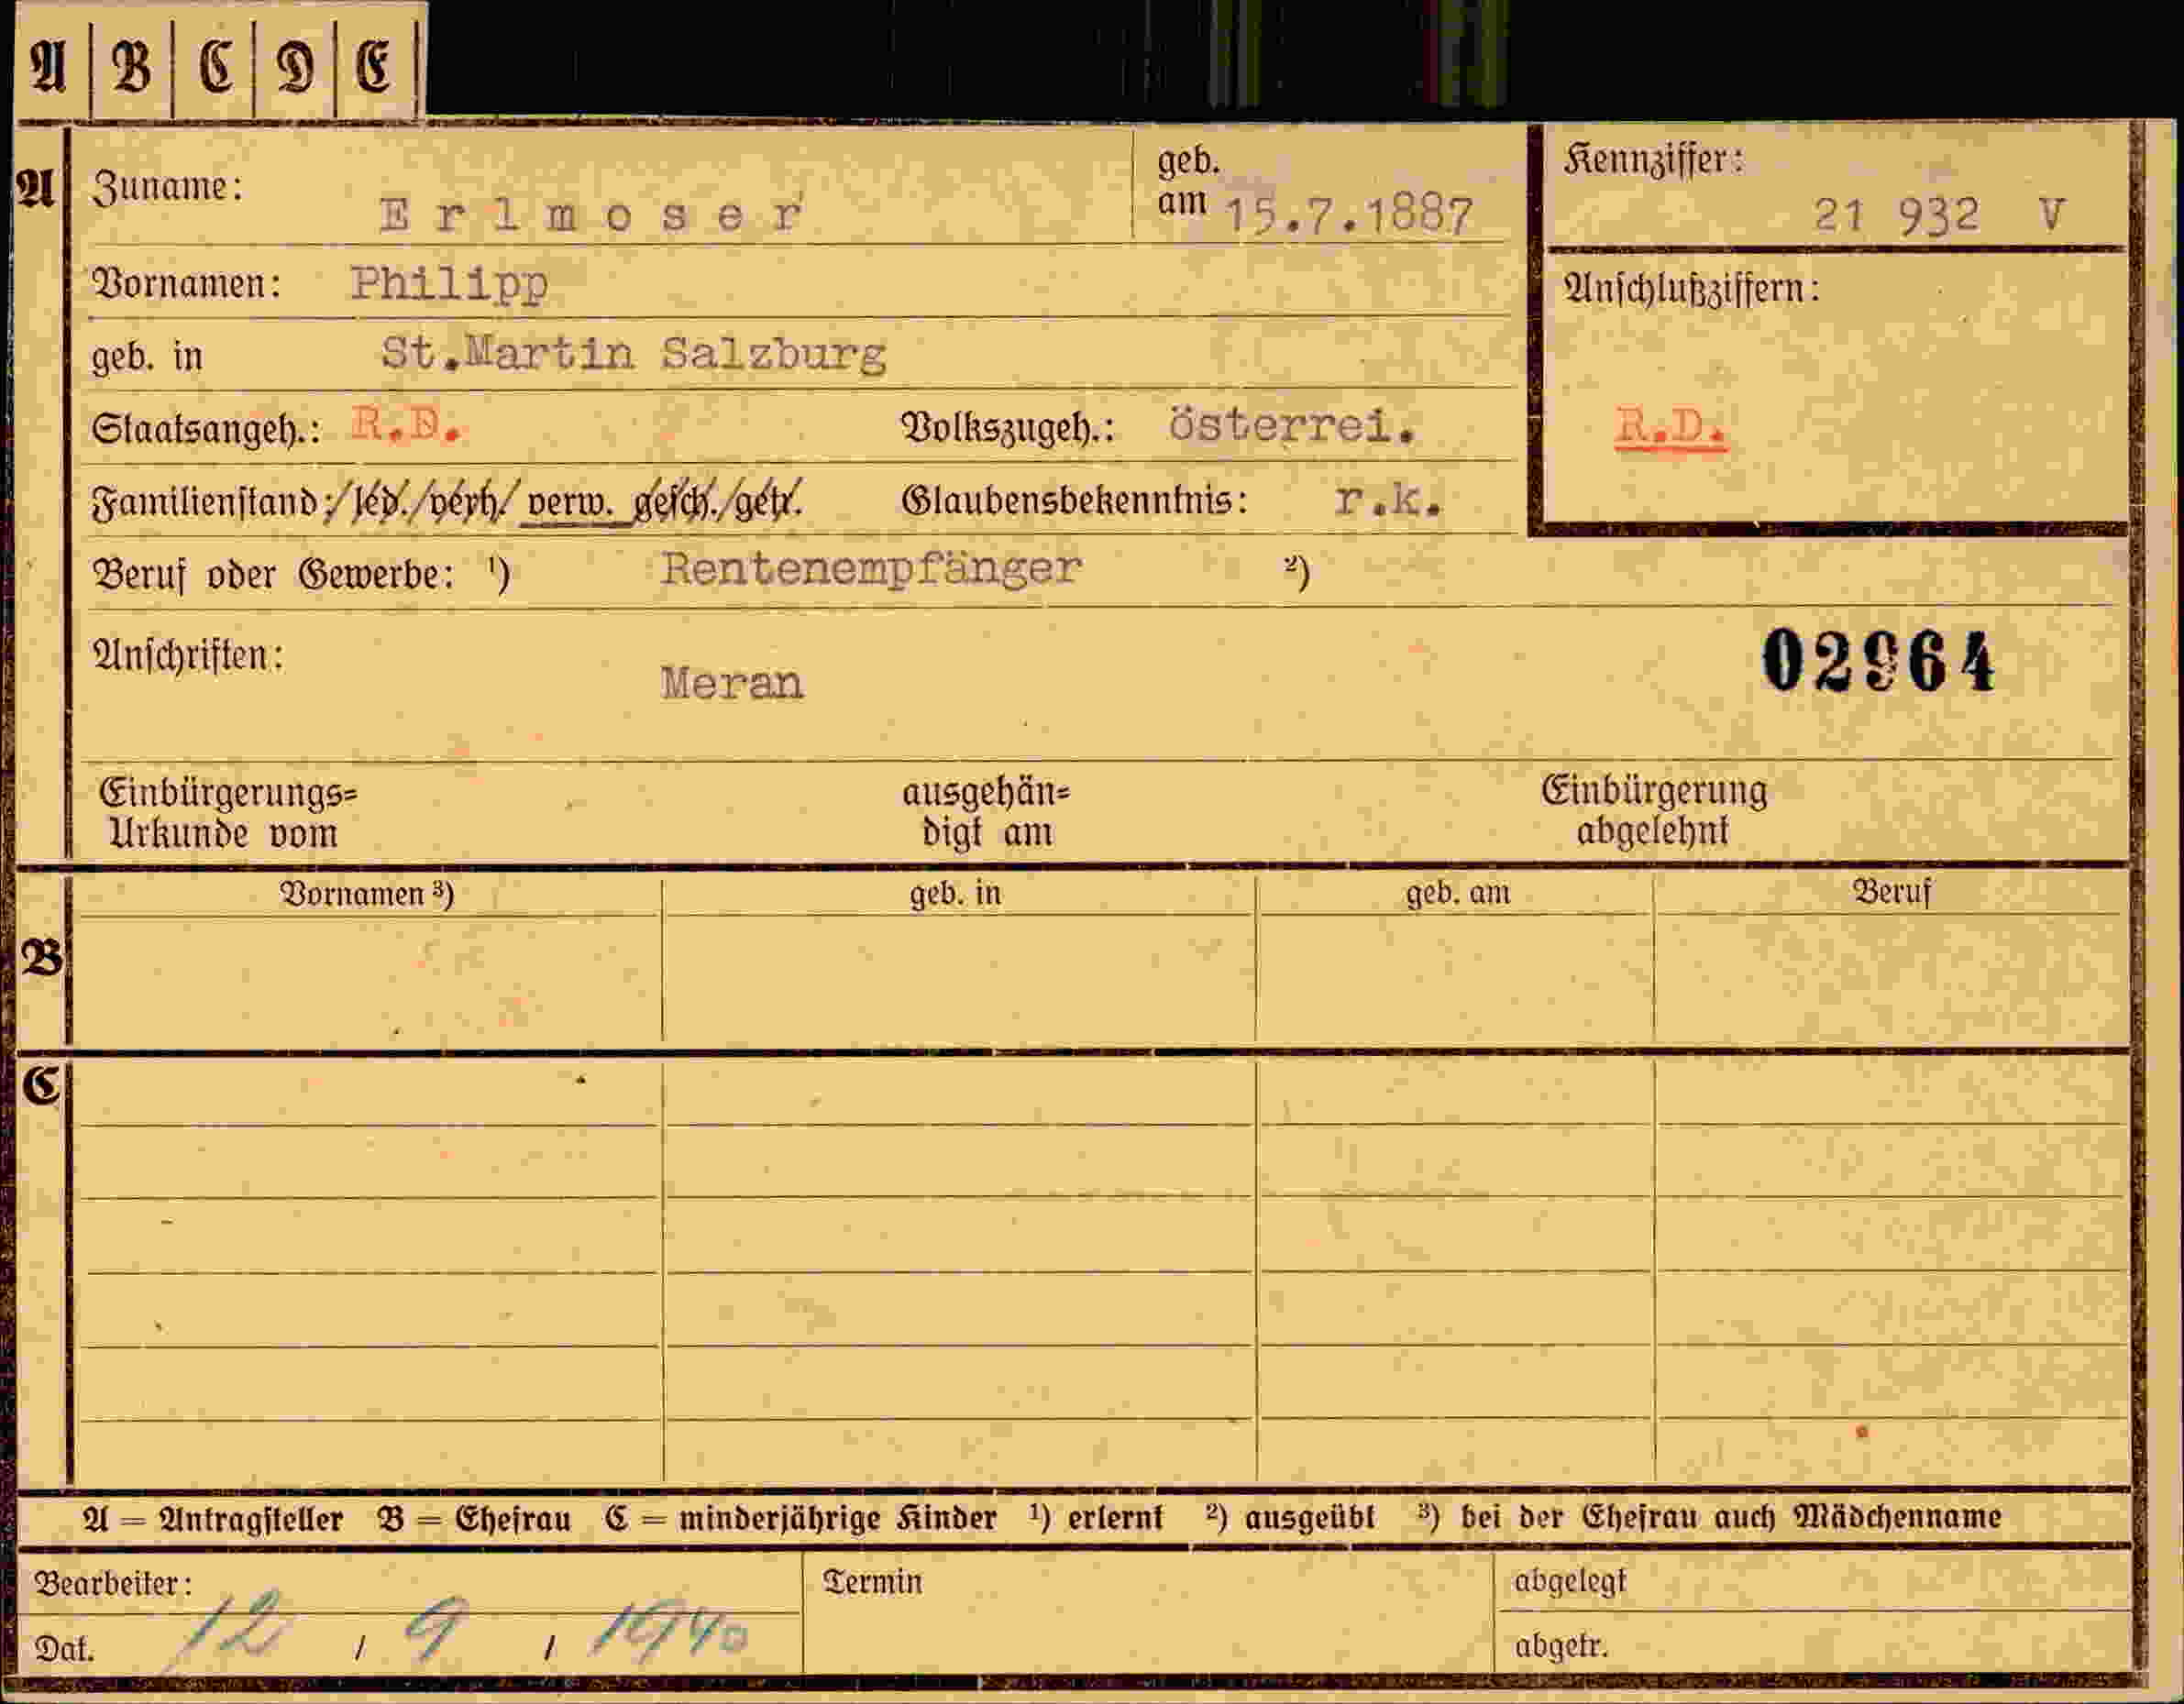 A B C D E
A Zuname: Erlmoser geb. am 15.7.1887 Kennziffer: 21 932 V
Vornamen: Philipp Anschlußziffern:
geb. in St.Martin Salzburg
Staatsangeh.: R.D. Volkszugeh.: österrei. R.D.
Familienstand: / led. / verh. / verw. gesch. / getr. Glaubensbekenntnis: r.k.
Beruf oder Gewerbe: ¹) Rentenempfänger ²)
Anschriften: Meran 02964
Einbürgerungs= ausgehän= Einbürgerung
Urkunde vom digt am abgelehnt
Vornamen ³) geb. in geb. am Beruf
B
C
A = Antragsteller B = Ehefrau C = minderjährige Kinder ¹) erlernt ²) ausgeübt ³) bei der Ehefrau auch Mädchenname
Bearbeiter: Termin abgelegt
Dat. 12 / 9 / 1940 abgetr.